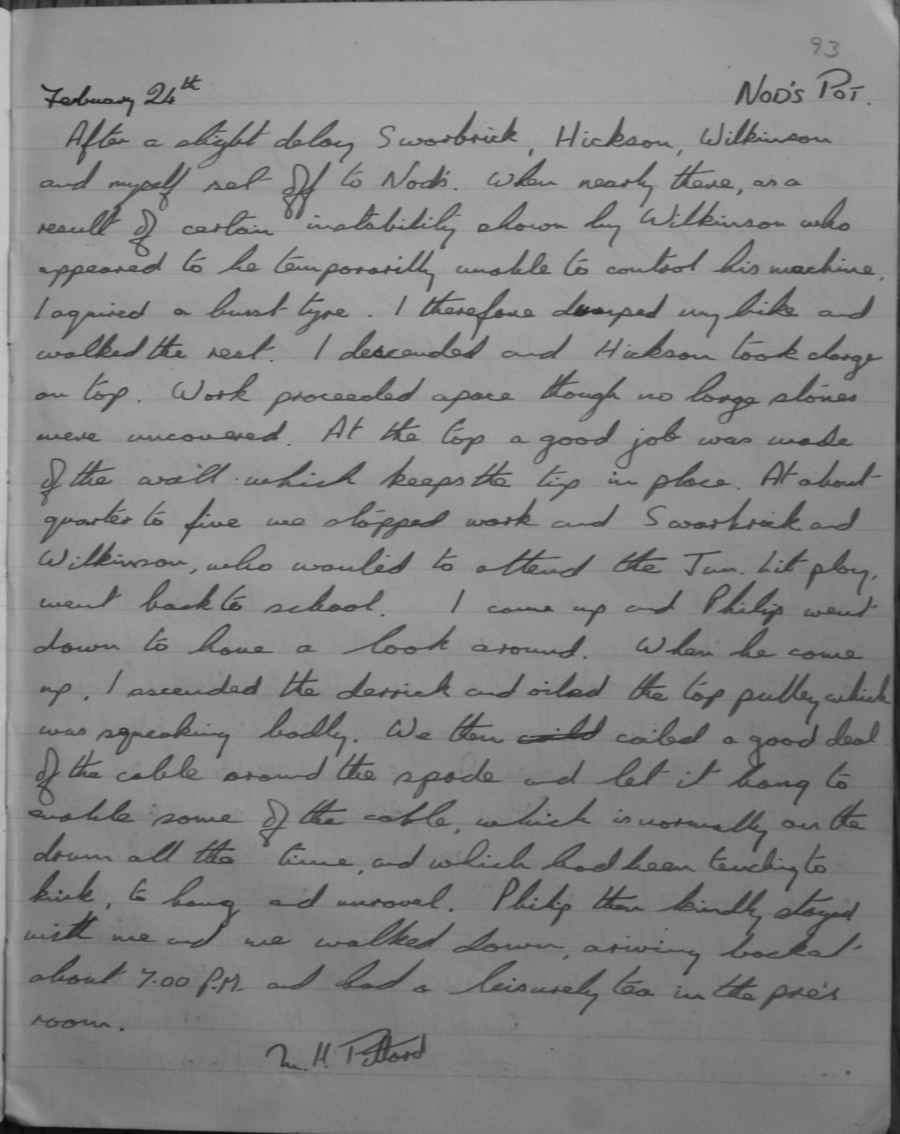 93
February 24th Nod's Pot.
After a slight delay Swarbrick, Hickson, Wilkinson
and myself set off to Nod's. When nearly there, as a
result of certain instability shown by Wilkinson who
appeared to be temporarilly unable to control his machine,
I aquired a burst tyre. I therefore dumped my bike and
walked the rest. I descended and Hickson took charge
on top. Work proceeded apace though no large stones
were uncovered. At the top a good job was made
of the wall which keeps the tip in place. At about
quarter to five we stopped work and Swarbrick and
Wilkinson, who wanted to attend the Jun. Lit play,
went back to school. I came up and Philip went
down to have a look around. When he came
up, I ascended the derrick and oiled the top pulley which
was squeaking badly. We then coild coiled a good deal
of the cable around the spade and let it hang to
enable some of the cable, which is normally on the
drum all the time, and which had been tending to
kink, to hang and unravel. Philip then kindly stayed
with me and we walked down, ariving back at
about 7.00 P.M. and had a leisurely tea in the pre's
room.
M. H. Pittard